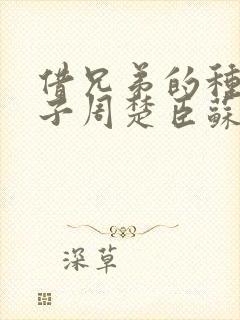 借兄弟的種
子周楚臣蘇
深草